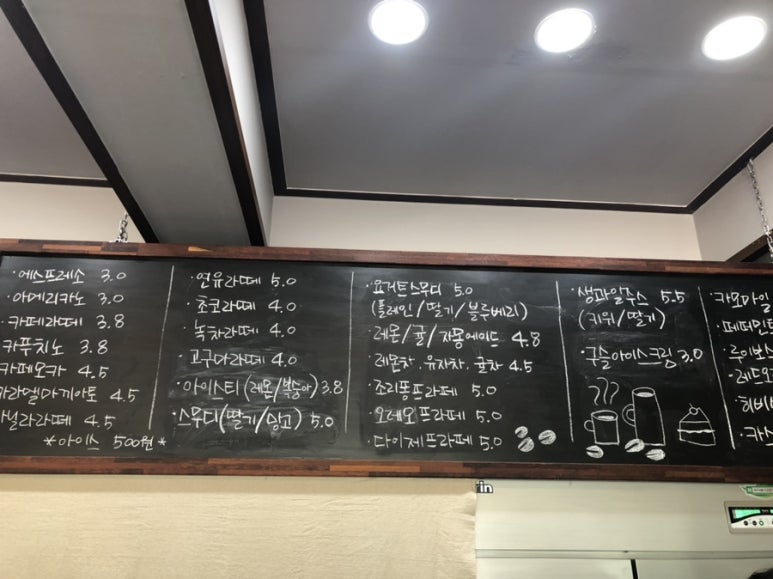 ·에스프레소 3.0
·아메리카노 3.0
·카페라떼 3.8
카푸치노 3.8
카페모카 4.5
카라멜마끼아또 4.5
바닐라라떼 4.5
*아이스 500원*
·연유라떼 5.0
·초코라떼 4.0
·녹차라떼 4.0
·고구마라떼 4.0
·아이스티(레몬/복숭아) 3.8
·스무디(딸기/망고) 5.0
·요거트스무디 5.0
(플레인/딸기/블루베리)
·레몬/귤/자몽에이드 4.8
·레몬차·유자차·귤차 4.5
·죠리퐁프라페 5.0
·오레오프라페 5.0
·다이제프라페 5.0
·생과일주스 5.5
(키위/딸기)
·구슬아이스크림 3.0
·카모마일
·페퍼민트
·루이보스
·레드오
·히비
·카
rin